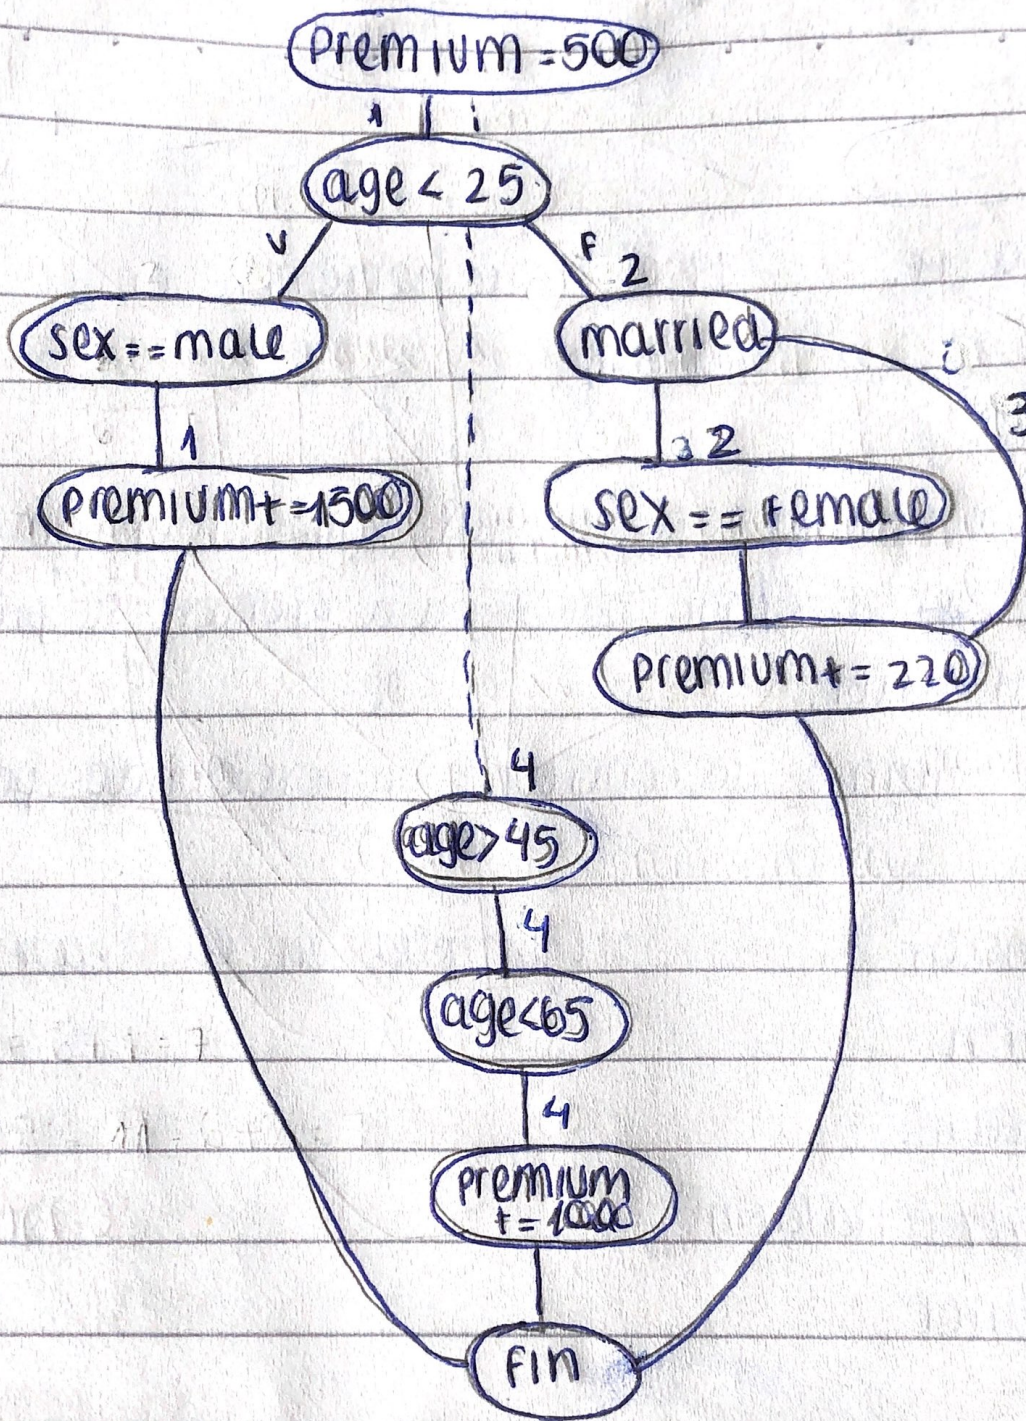 premium =500
1 i
age < 25
V F 2
sex==male married
i
3
1 2
premium+=1500 sex == Female
premium+= 220
4
age>45
4
age<65
4
premium
+=1000
fin